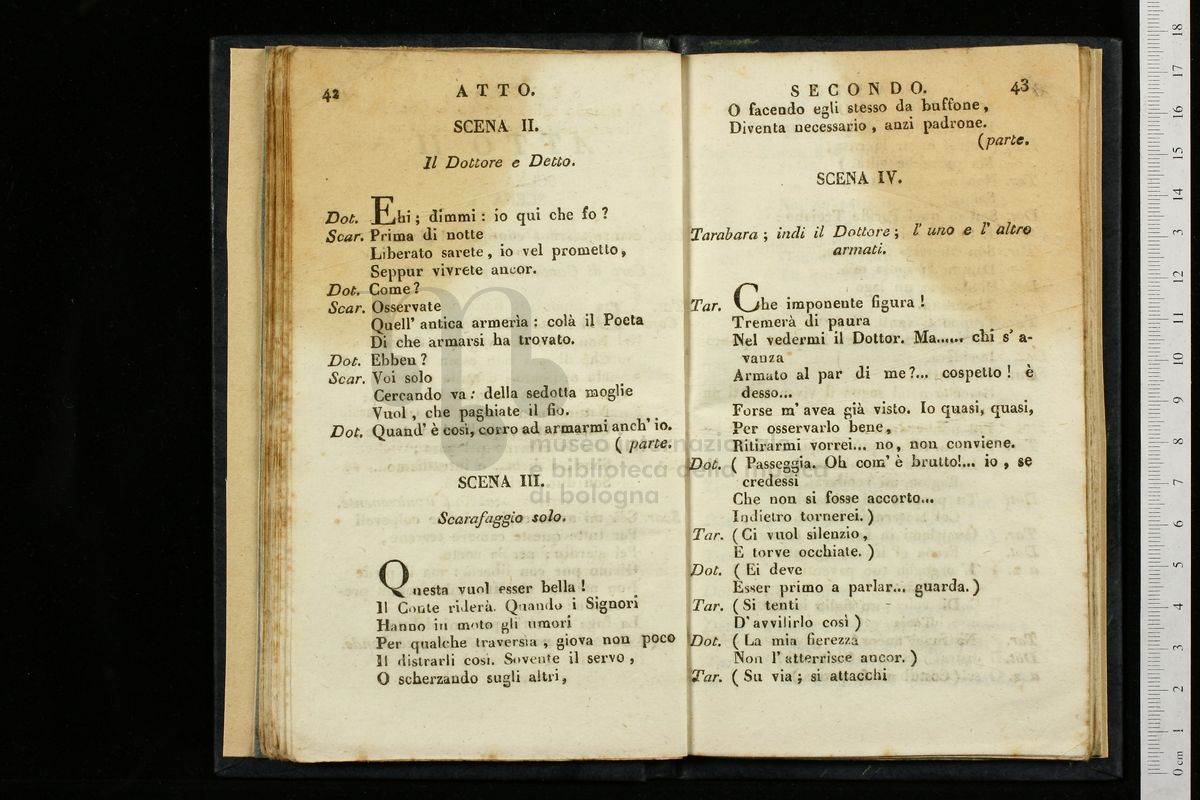 42
ATTO.
SCENA II.
Il Dottore e Detto.
Dot. Ehi; dimmi: io qui che fo?
Scar. Prima di notte
Liberato sarete, io vel prometto,
Seppur vivrete ancor.
Dot. Come?
Scar. Osservate
Quell' antica armerìa: colà il Poeta
Di che armarsi ha trovato.
Dot. Ebben?
Scar. Voi solo
Cercando va: della sedotta moglie
Vuol, che paghiate il fio.
Dot. Quand' è così, corro ad armarmi anch' io.
(parte.
SCENA III.
Scarafaggio solo.
Questa vuol esser bella!
Il Conte riderà. Quando i Signori
Hanno in moto gli umori
Per qualche traversia, giova non poco
Il distrarli così. Sovente il servo,
O scherzando sugli altri,
SECONDO.
43
O facendo egli stesso da buffone,
Diventa necessario, anzi padrone.
(parte.
SCENA IV.
Tarabara; indi il Dottore; l' uno e l' altro
armati.
Tar. Che imponente figura!
Tremerà di paura
Nel vedermi il Dottor. Ma...... chi s' a-
vanza
Armato al par di me?... cospetto! è
desso...
Forse m' avea già visto. Io quasi, quasi,
Per osservarlo bene,
Ritirarmi vorrei... no, non conviene.
Dot. (Passeggia. Oh com' è brutto!... io, se
credessi
Che non si fosse accorto...
Indietro tornerei.)
Tar. (Ci vuol silenzio,
E torve occhiate.)
Dot. (Ei deve
Esser primo a parlar... guarda.)
Tar. (Si tenti
D' avvilirlo così)
Dot. (La mia fierezza
Non l' atterrisce ancor.)
Tar. (Su via; si attacchi
museo internazionale
e biblioteca della musica
di bologna
0 cm 1 2 3 4 5 6 7 8 9 10 11 12 13 14 15 16 17 18